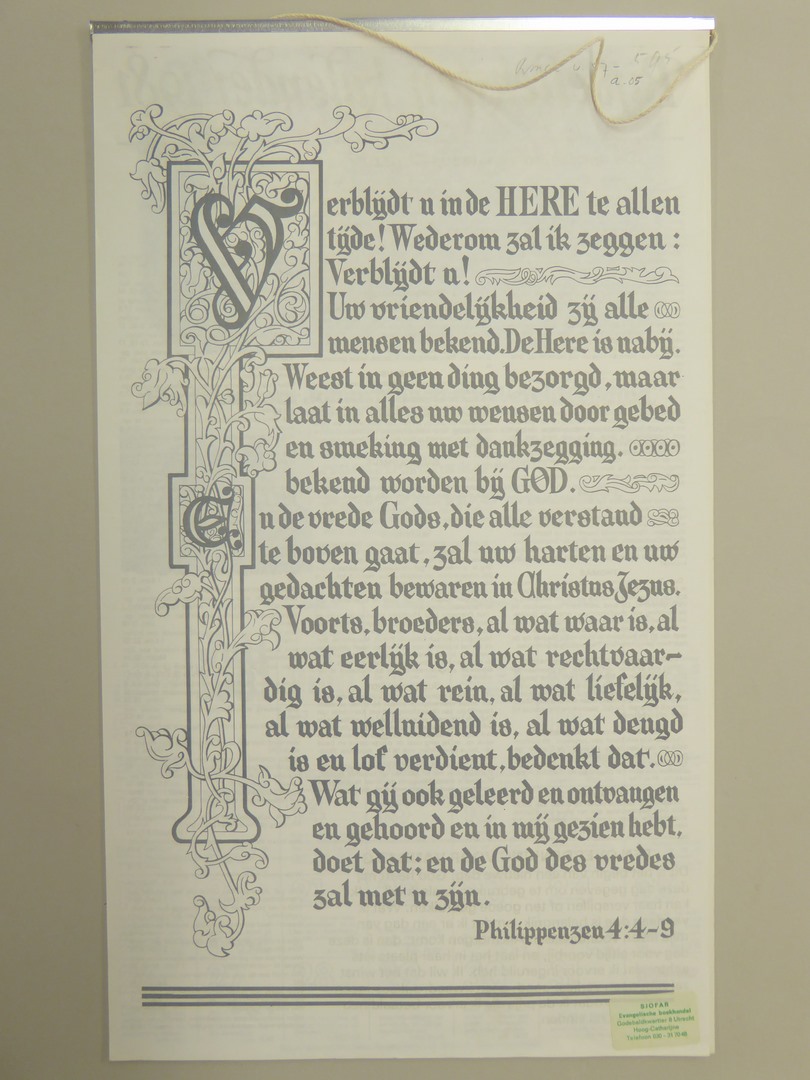 a.05
Verblijdt u in de HERE te allen
tijde! Wederom zal ik zeggen :
Verblijdt u!
Uw vriendelijkheid zij alle
mensen bekend. De Here is nabij.
Weest in geen ding bezorgd, maar
laat in alles uw wensen door gebed
en smeking met dankzegging.
bekend worden bij GOD.
En de vrede Gods, die alle verstand
te boven gaat, zal uw harten en uw
gedachten bewaren in Christus Jezus.
Voorts, broeders, al wat waar is, al
wat eerlijk is, al wat rechtvaar-
dig is, al wat rein, al wat liefelijk,
al wat welluidend is, al wat deugd
is en lof verdient, bedenkt dat.
Wat gij ook geleerd en ontvangen
en gehoord en in mij gezien hebt,
doet dat; en de God des vredes
zal met u zijn.
Philippenzen 4:4-9
SJOFAR
Evangelische boekhandel
8 Utrecht
Hoog-Catharijne
Telefoon 030 -